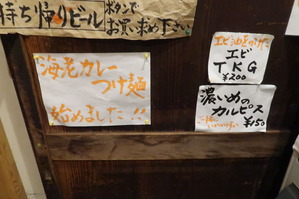 持ち帰りビール
ボタンで
お買い求め下さい
海老カレー
つけ麺
始めました…
エビ
TKG
¥200
濃いめの
カルピス
¥150